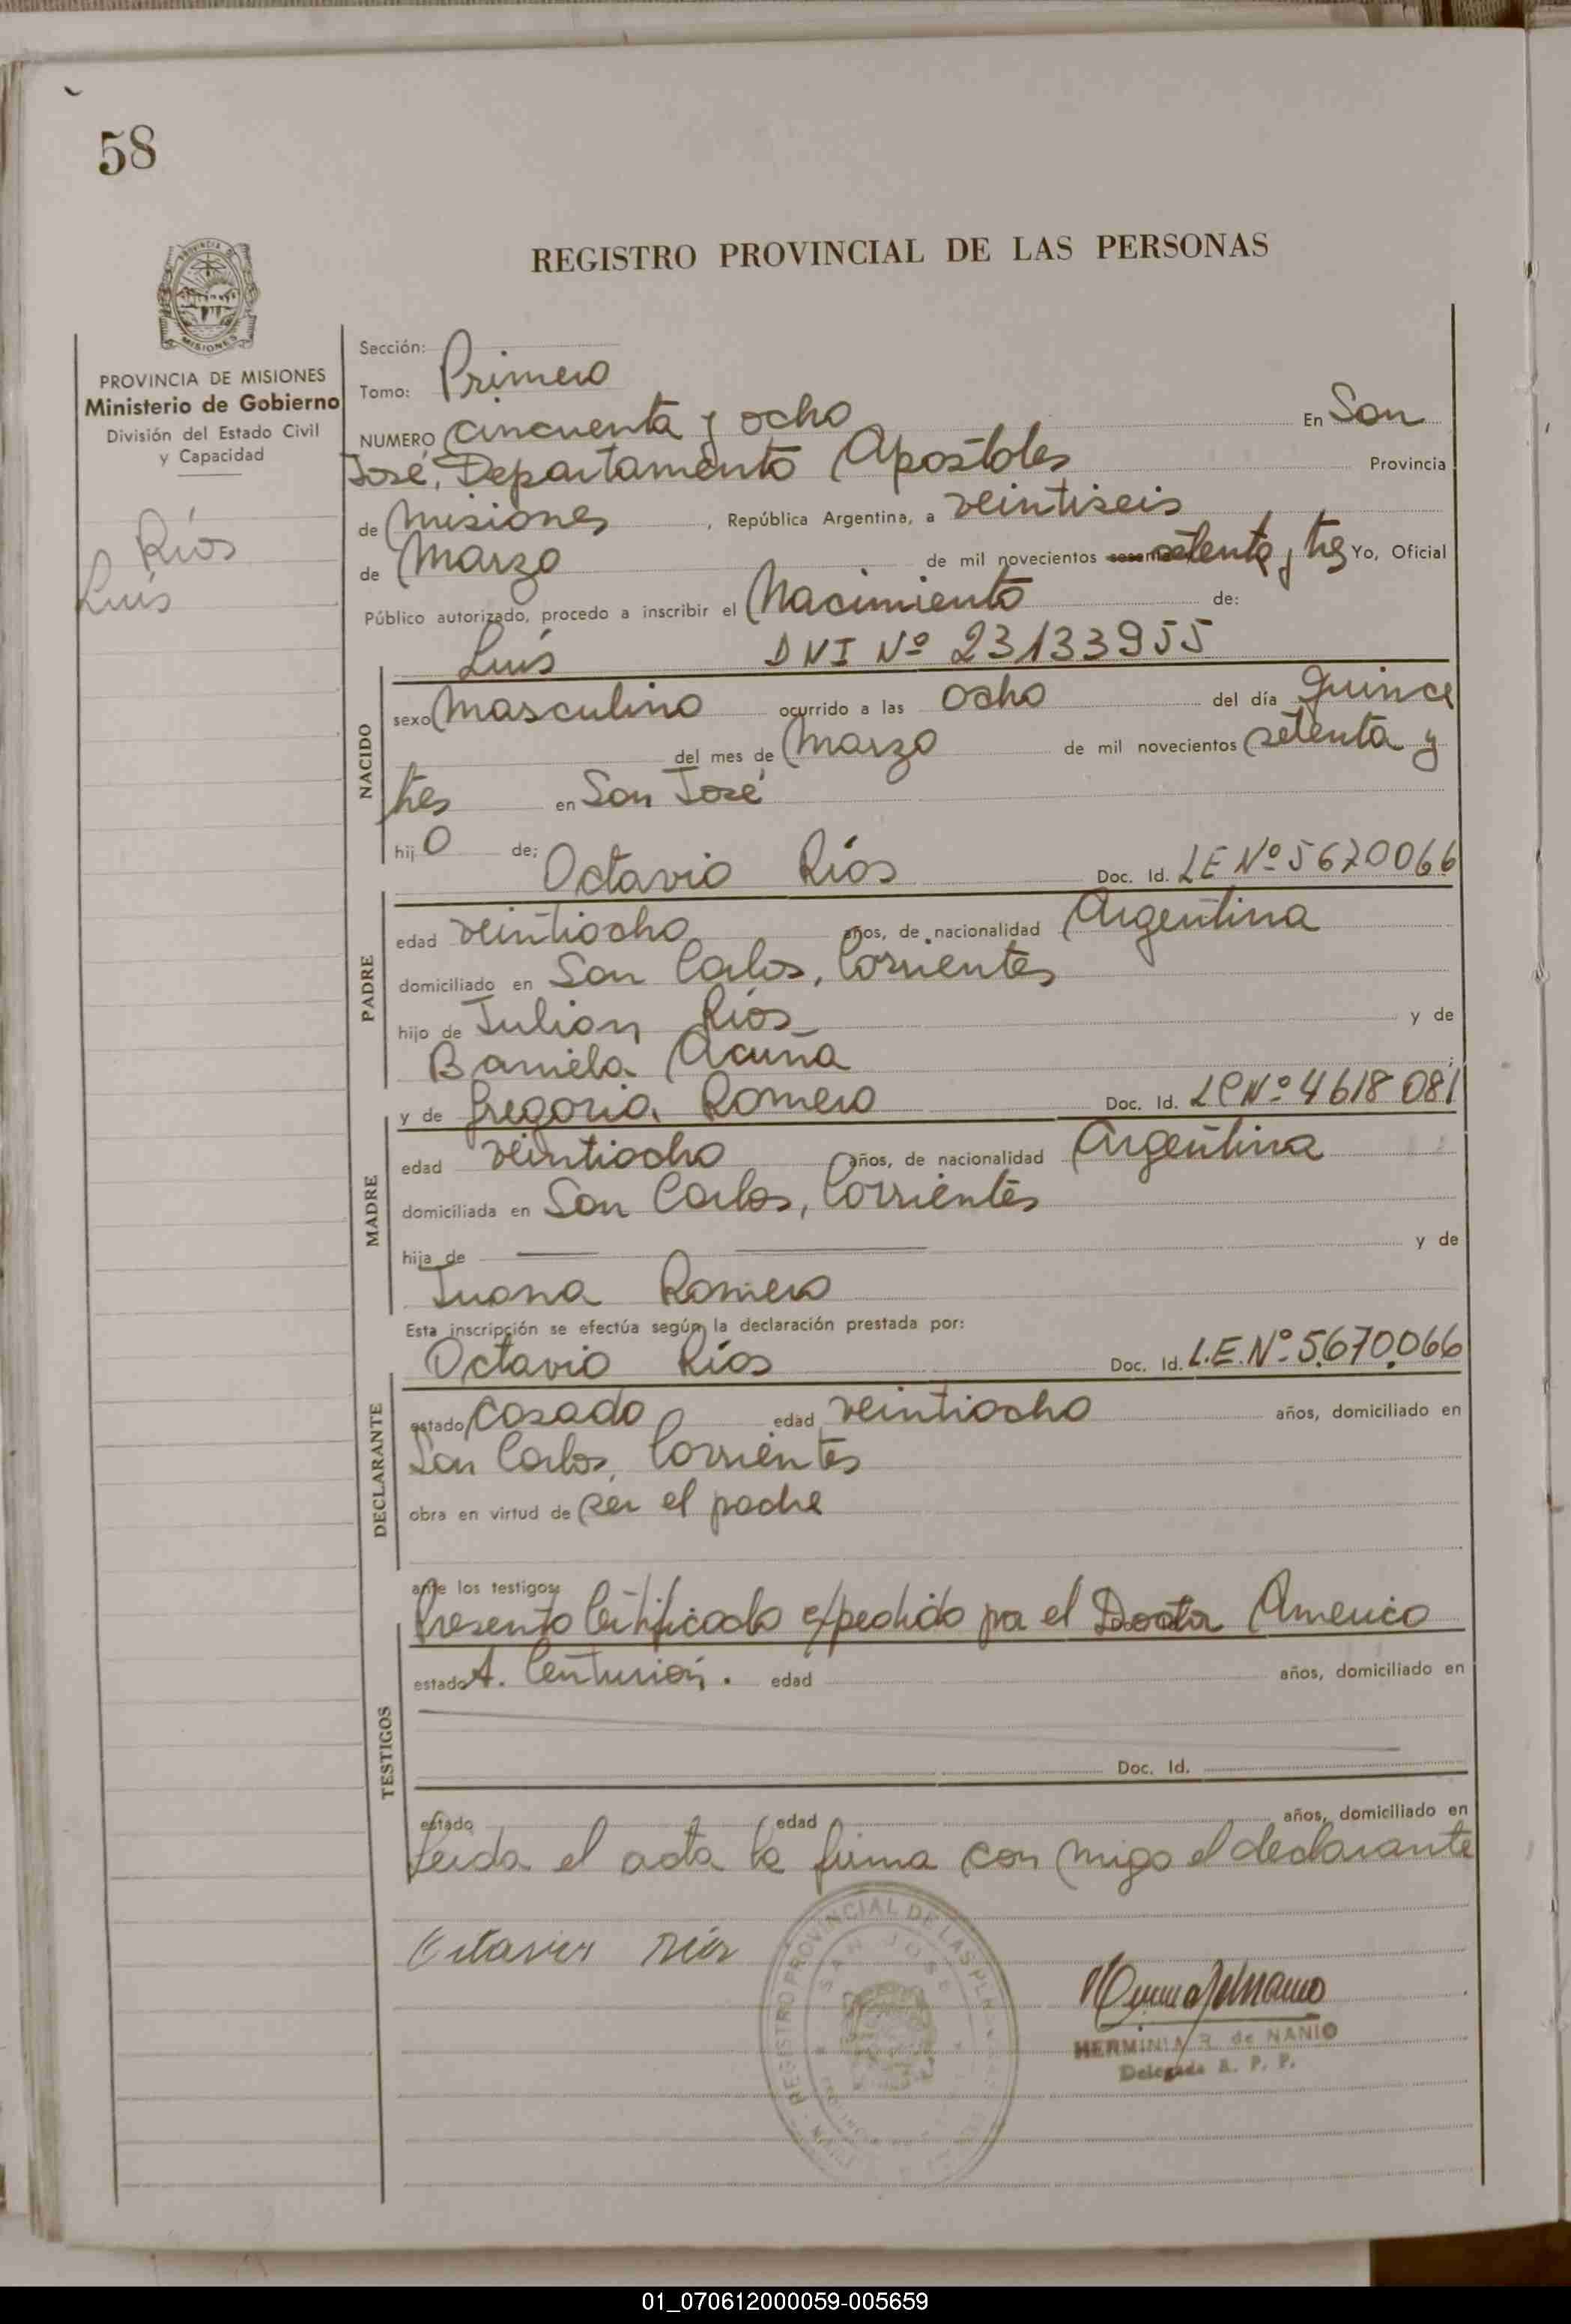 58
REGISTRO PROVINCIAL DE LAS PERSONAS
PROVINCIA DE MISIONES
MISIONES
PROVINCIA DE MISIONES
Ministerio de Gobierno
División del Estado Civil
y Capacidad
Ríos
Luis
Sección:
Tomo: Primero
NUMERO cincuenta y ocho En San
José, Departamento Apostoles Provincia
de Misiones, República Argentina, a veintiseis
de Marzo de mil novecientos setenta y tres Yo, Oficial
Público autorizado, procedo a inscribir el Nacimiento de:
Luis DNI Nº 23133955
NACIDO
sexo Masculino ocurrido a las ocho del día quince
del mes de Marzo de mil novecientos setenta y
tres en San José
hijo de: Octavio Ríos Doc. Id. LE Nº 5670066
PADRE
edad veintiocho años, de nacionalidad Argentina
domiciliado en San Carlos, Corrientes
hijo de Julian Ríos y de
Acuña
y de Gregoria Romero Doc. Id. LC Nº 4618081
MADRE
edad veintiocho años, de nacionalidad Argentina
domiciliada en San Carlos, Corrientes
hija de y de
Juana Romero
Esta inscripción se efectúa según la declaración prestada por:
Octavio Ríos Doc. Id. L.E. Nº 5.670.066
DECLARANTE
estado casado edad veintiocho años, domiciliado en
San Carlos, Corrientes
obra en virtud de ser el padre
ante los testigos:
Presento Certificado expedido por el Doctor Americo
TESTIGOS
estado A. Centurion. edad años, domiciliado en
Doc. Id.
estado edad años, domiciliado en
Leida el acta la firma con migo el declarante
Octavio Rios
REGISTRO PROVINCIAL DE LAS
SAN JOSE
HERMINIA de NANIO
Delegada R. P. P.
01_070612000059-005659